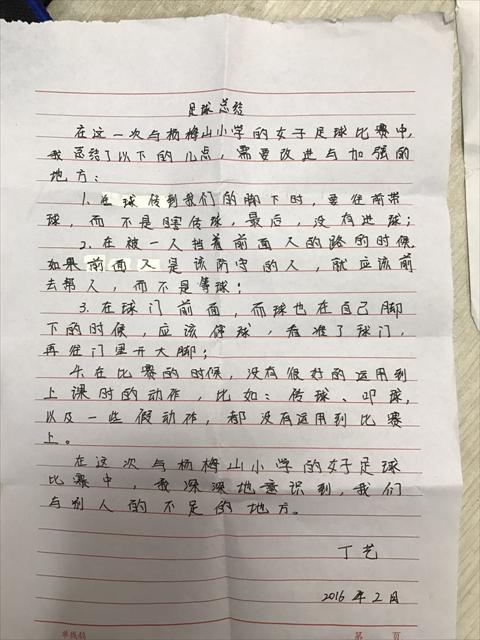 足球总结
在这一次与杨梅山小学的女子足球比赛中,
我总结了以下的几点,需要改进与加强的
地方:
1.在球传到我们的脚下时,要往前带
球,而不是瞎传球,最后,没有进球;
2.在被一人挡着前面人的路的时候.
如果前面人是该防守的人,就应该前
去帮人,而不是等球;
3.在球门前面,而球也在自己脚
下的时候,应该停球,看准了球门,
再往门里开大脚;
4.在比赛的时候,没有很好的运用到
上课时的动作,比如:传球、叩球,
以及一些假动作,都没有运用到比赛
上。
在这次与杨梅山小学的女子足球
比赛中,我深深地意识到,我们
与别人的不足的地方。
丁艺
2016年2月
单线稿 第 页